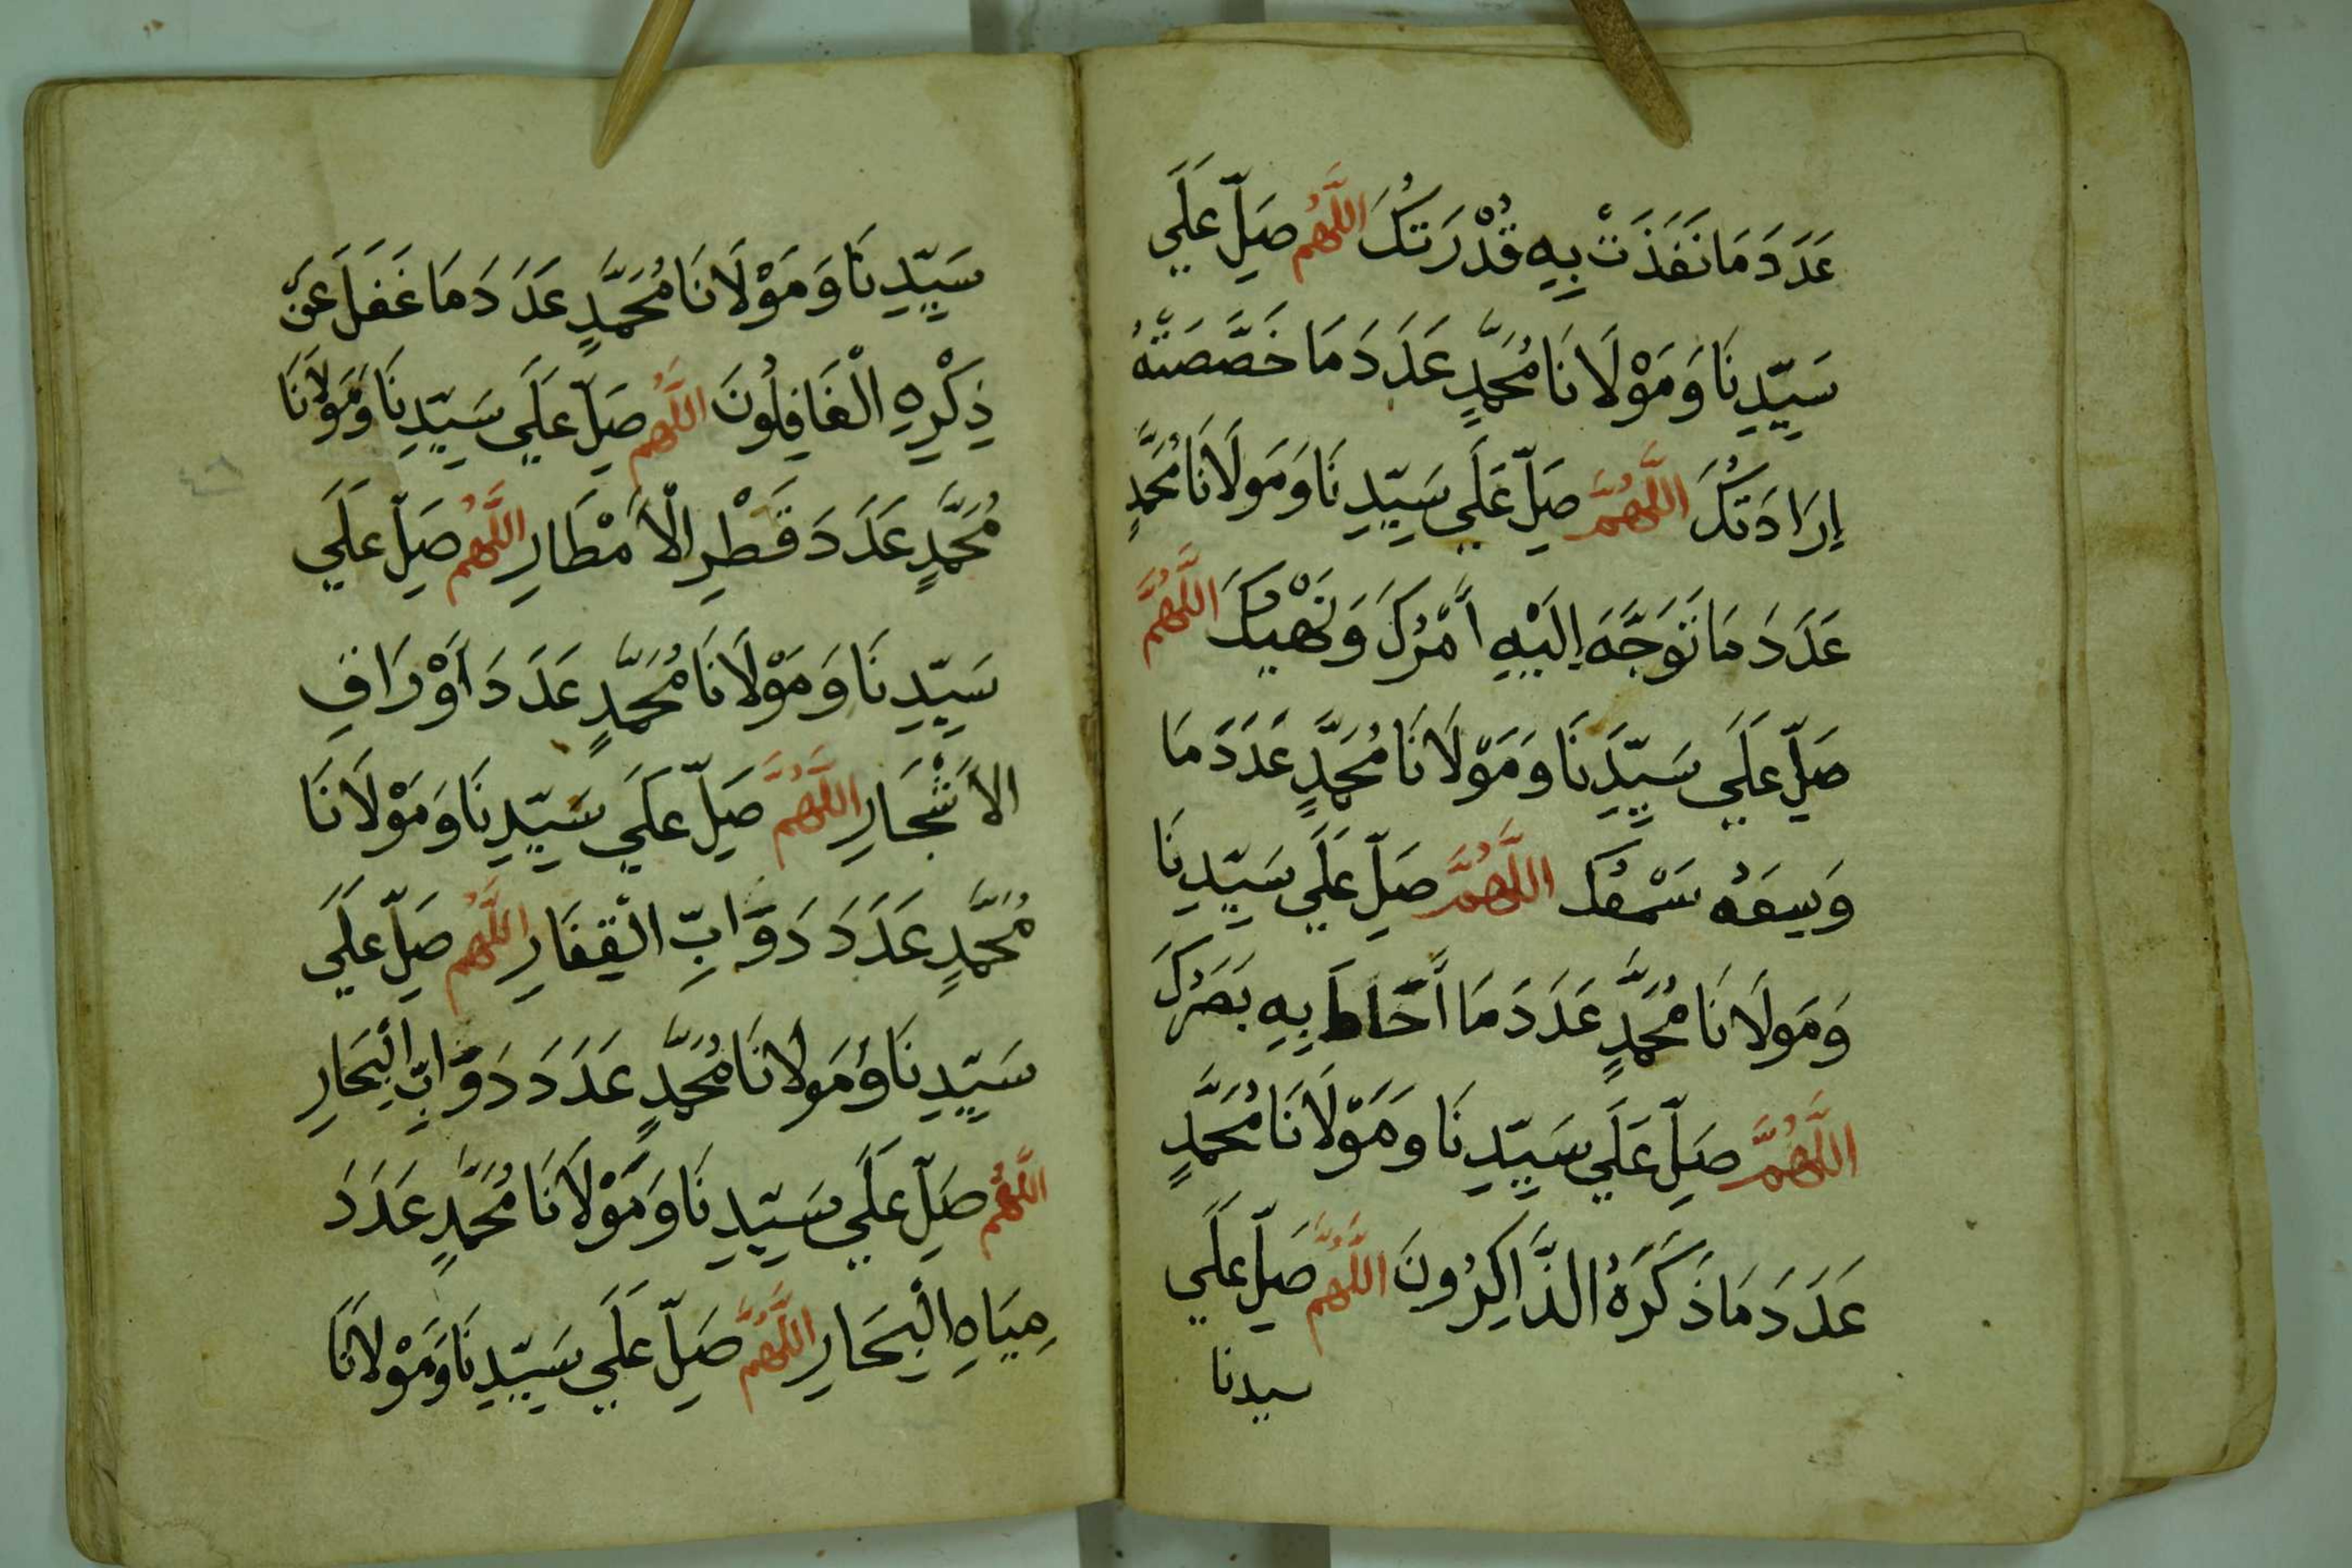 عَدَدَ مَا نَفَذَتْ بِهِ قُدْرَتُكَ اللَّهُمَّ صَلِّ عَلَي
سَيِّدِنَا وَمَوْلَانَا مُحَمَّدٍ عَدَدَ مَا خَصَّصَتْهُ
إِرَادَتُكَ اللَّهُمَّ صَلِّ عَلَي سَيِّدِنَا وَمَولَانَا مُحَمَّدٍ
عَدَدَ مَا تَوَجَّهَ اِلَيْهِ أَمْرُكَ وَنَهْيُكَ اللَّهُمَّ
صَلِّ عَلَي سَيِّدِنَا وَمَوْلَانَا مُحَمَّدٍ عَدَدَ مَا
وَسِعَهُ سَمْعُكَ اللَّهُمَّ صَلِّ عَلَي سَيِّدِنَا
وَمَولَانَا مُحَمَّدٍ عَدَدَ مَا أَحَاطَ بِهِ بَصَرُكَ
اللَّهُمَّ صَلِّ عَلَي سَيِّدِنَا وَمَوْلَانَا مُحَمَّدٍ
عَدَدَ مَا ذَكَرَهُ الذَّاكِرُونَ اللَّهُمَّ صَلِّ عَلَي
سيدنا
سَيِّدِنَا وَمَوْلَانَا مُحَمَّدٍ عَدَدَ مَا غَفَلَ عَنْ
ذِكْرِهِ الْغَافِلُونَ اللَّهُمَّ صَلِّ عَلَي سَيِّدِنَا وَمَوْلَانَا
مُحَمَّدٍ عَدَدَ قَطْرِ الْأَمْطَارِ اللَّهُمَّ صَلِّ عَلَي
سَيِّدِنَا وَمَوْلَانَا مُحَمَّدٍ عَدَدَ أَوْرَاقِ
الأَشْجَارِ اللَّهُمَّ صَلِّ عَلَي سَيِّدِنَا وَمَوْلَانَا
مُحَمَّدٍ عَدَدَ دَوَّابِّ الْقِفَارِ اللَّهُمَّ صَلِّ عَلَي
سَيِّدِنَا وَمَولَانَا مُحَمَّدٍ عَدَدَ دَوَّابِّ الْبِحَارِ
اللَّهُمَّ صَلِّ عَلَي سَيِّدِنَا وَمَوْلَانَا مُحَمَّدٍ عَدَدَ
مِيَاهِ الْبِحَارِ اللَّهُمَّ صَلِّ عَلَي سَيِّدِنَا وَمَوْلَانَا